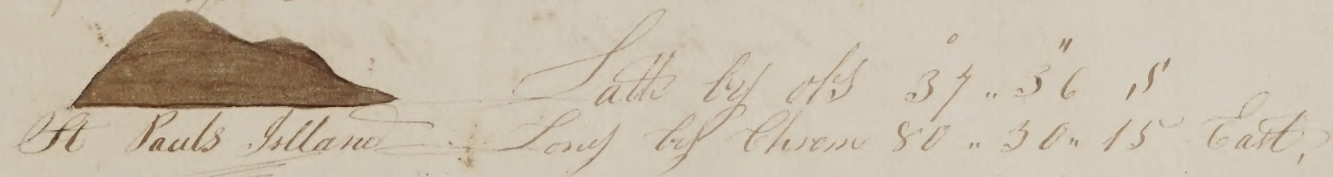 Latt by obs 37 ° .. 36 " S
St Pauls Islland Long by Chrom 80 .. 30 .. 15 East,